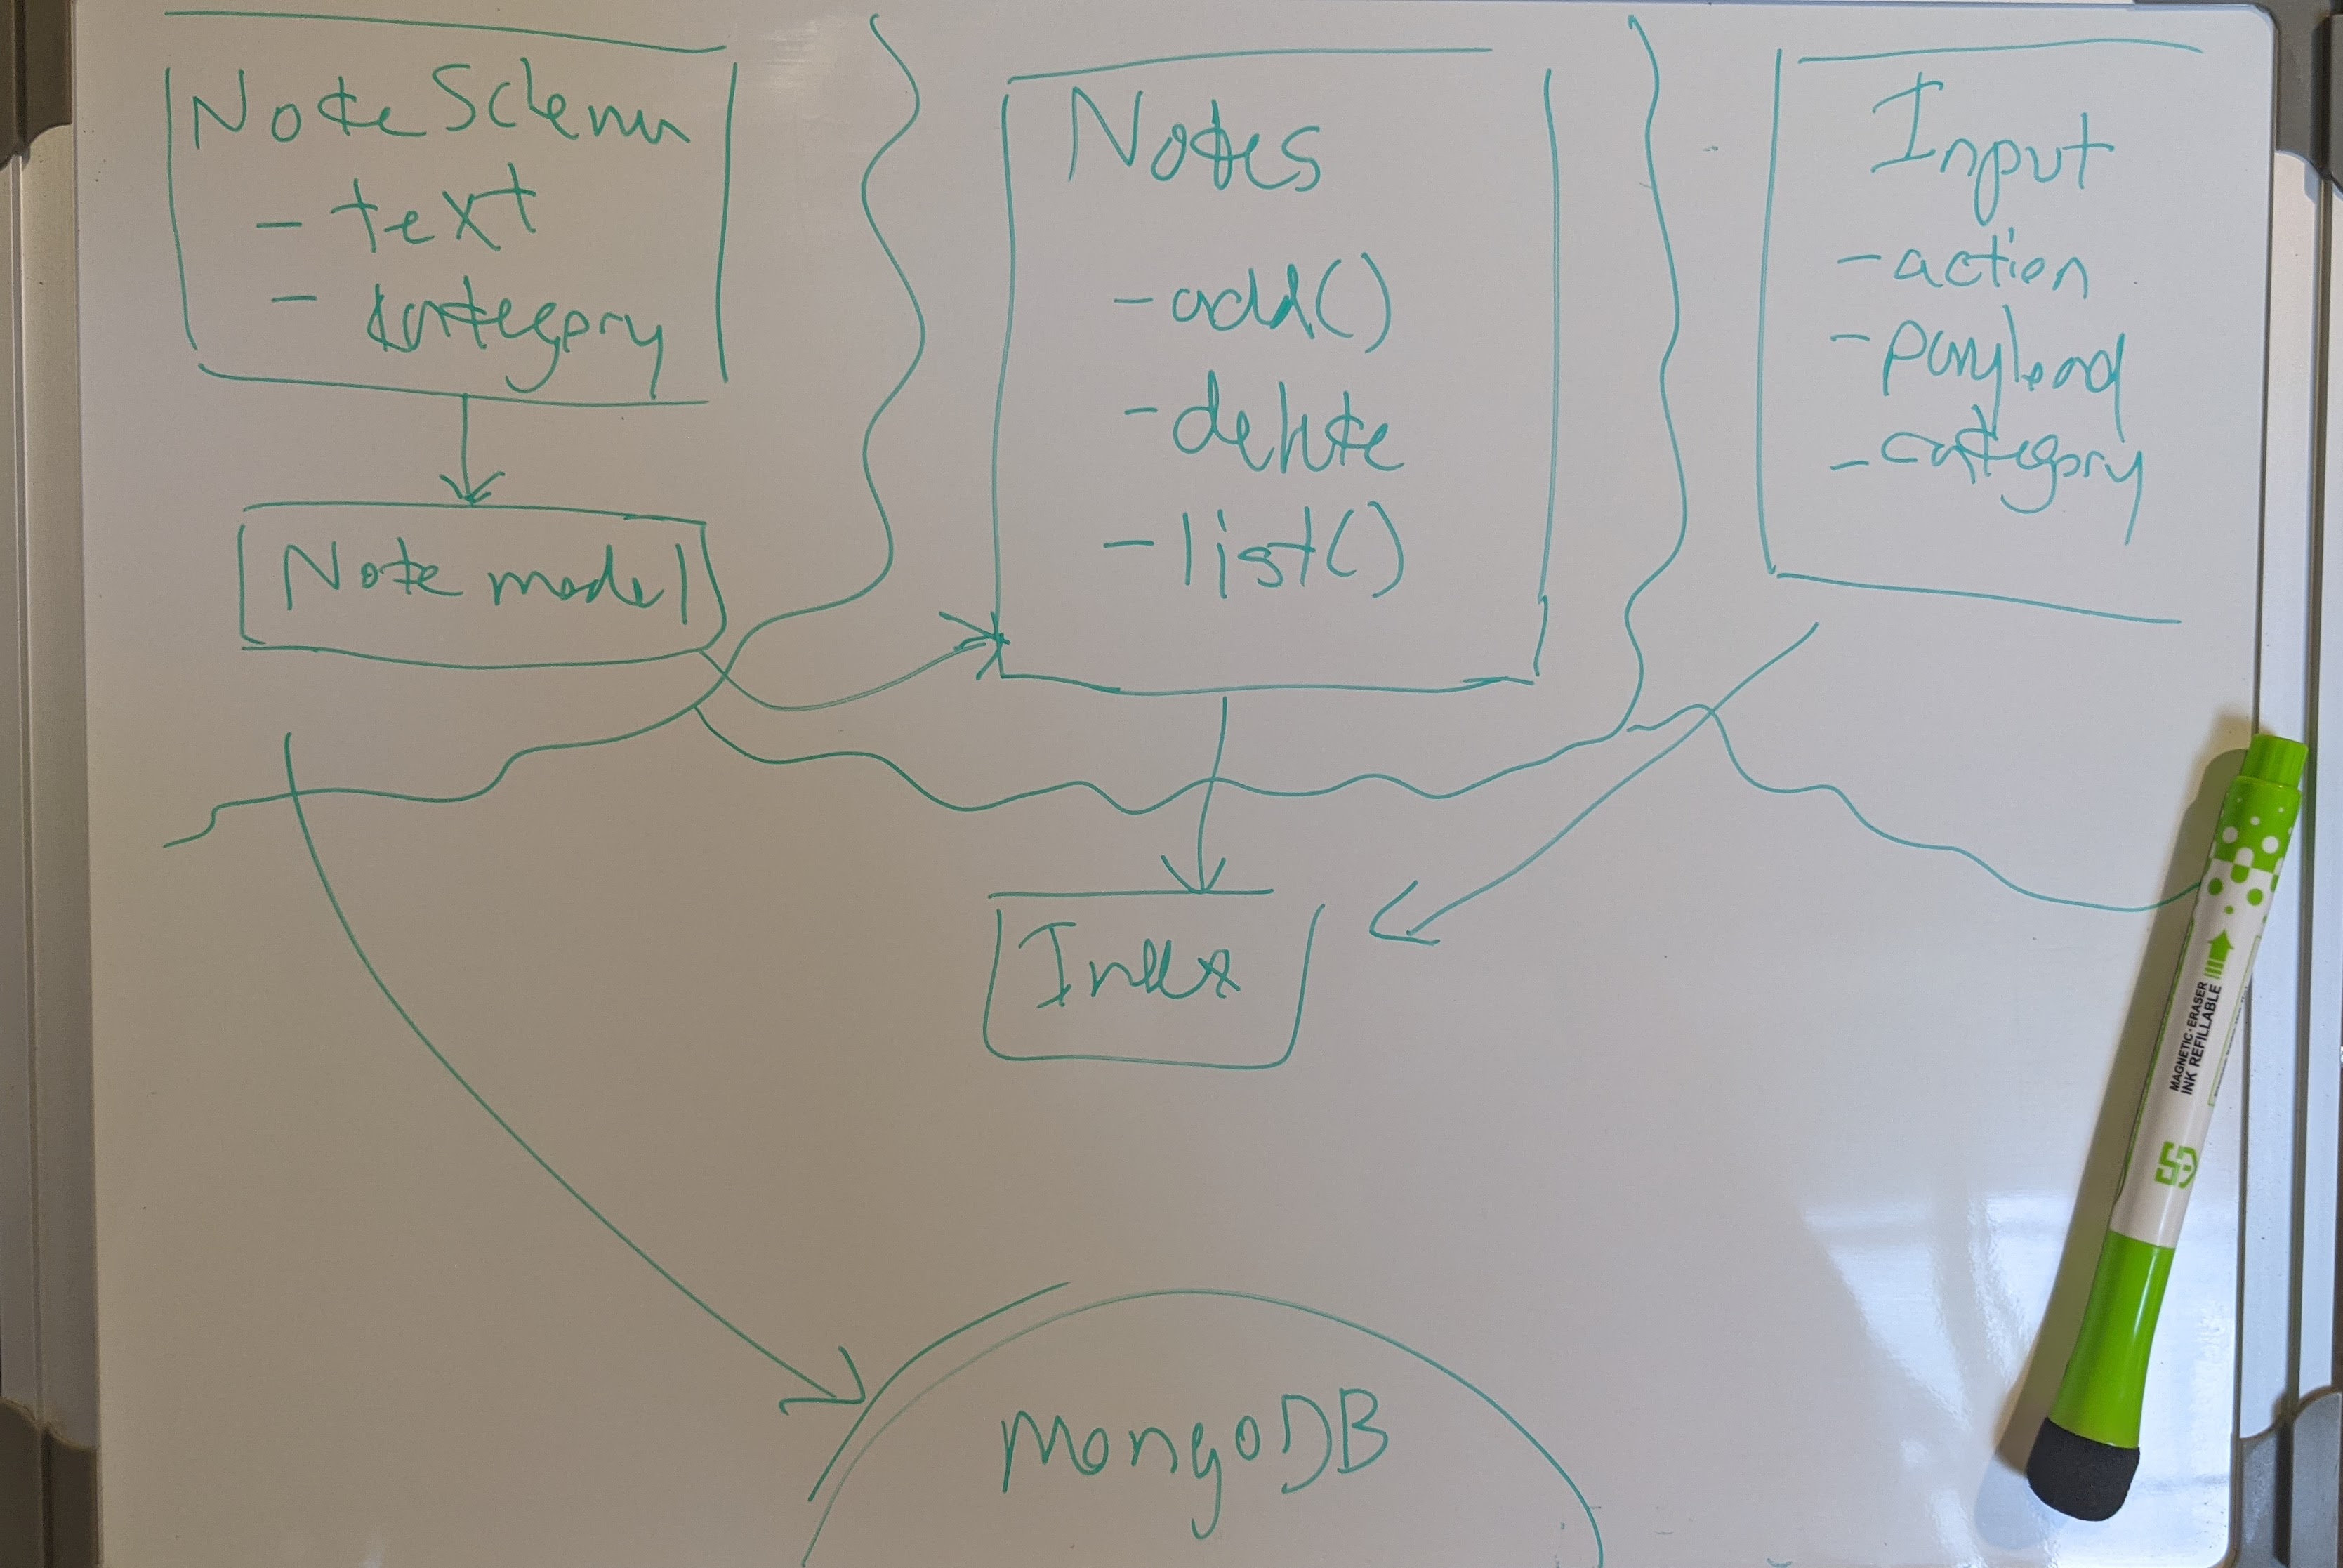 Note Schema
- text
- category
Note model
Notes
- add()
- delete
- list()
Input
- action
- payload
- category
Index
MongoDB
MAGNETIC·ERASER
INK REFILLABLE